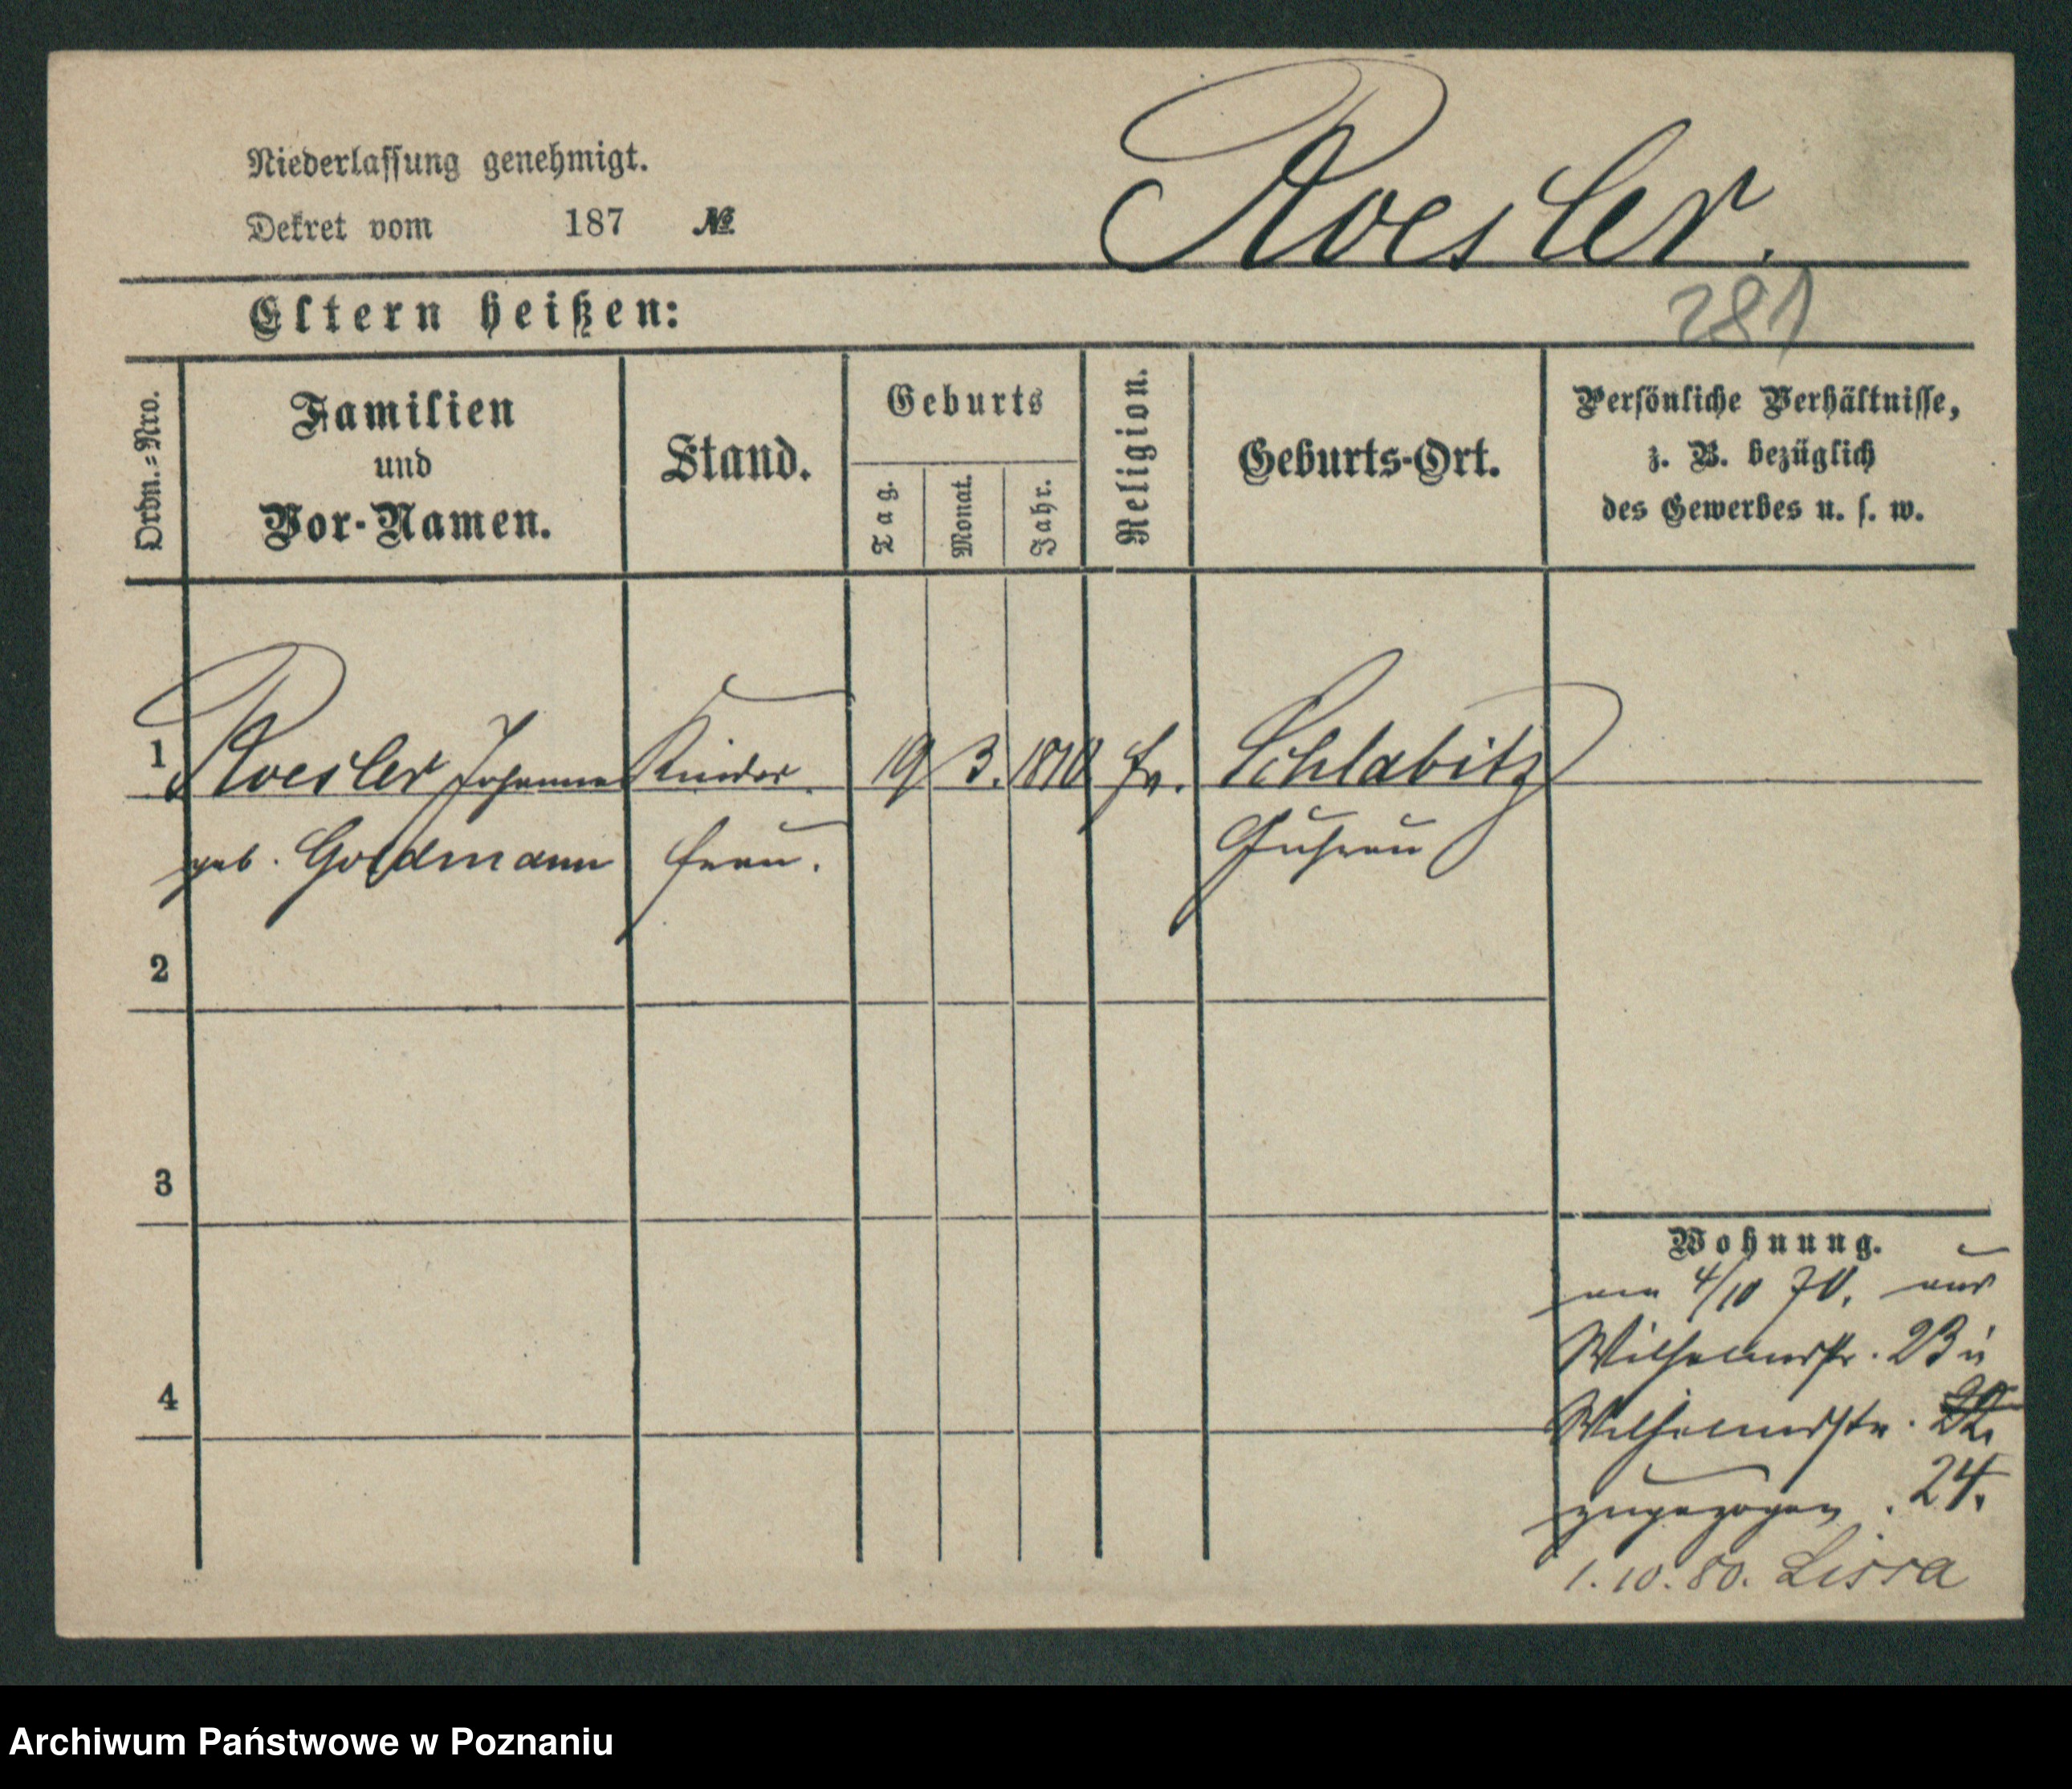 Niederlassung genehmigt.
Dekret vom 187 №
Roesler.
281
Eltern heißen:
Ordn.-Nro.
Familien
und
Vor-Namen.
Stand.
Geburts
Tag.
Monat.
Jahr.
Religion.
Geburts-Ort.
Persönliche Verhältnisse,
z. B. bezüglich
des Gewerbes u. s. w.
1 Roesler Johanna Kinder 19 3. 1810 Schlabitz
geb. Goldmann frau. Guhrau
2
3
4
Wohnung.
4/10 70.
Wilhelmstr. 23
Wilhelmstr.
zugezogen. 24.
1.10.80. Lissa
Archiwum Państwowe w Poznaniu